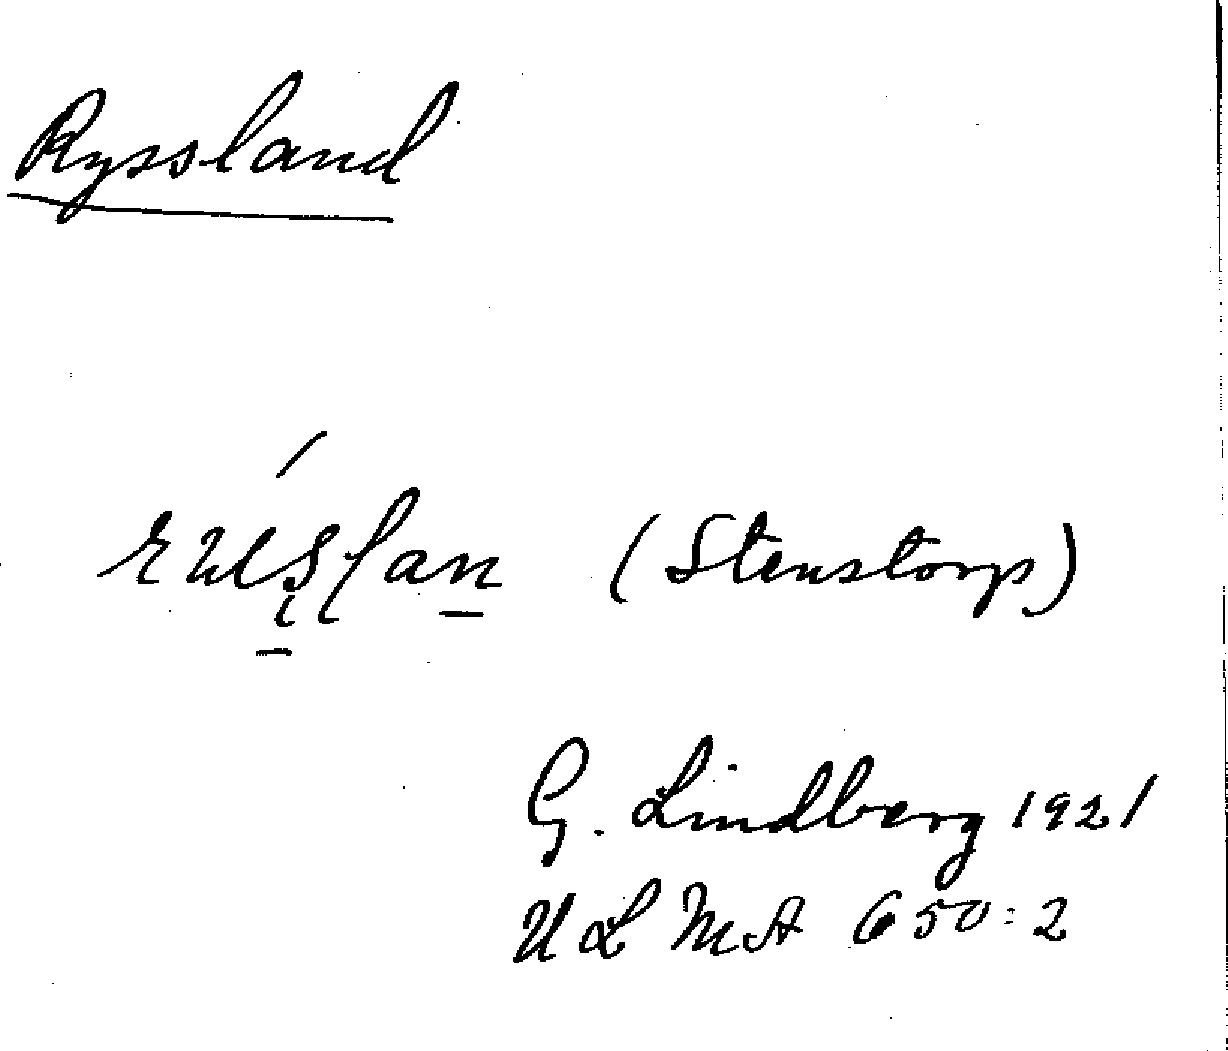 Ryssland
(Stenstorp)
G. Lindberg 1921
ULMA 650:2